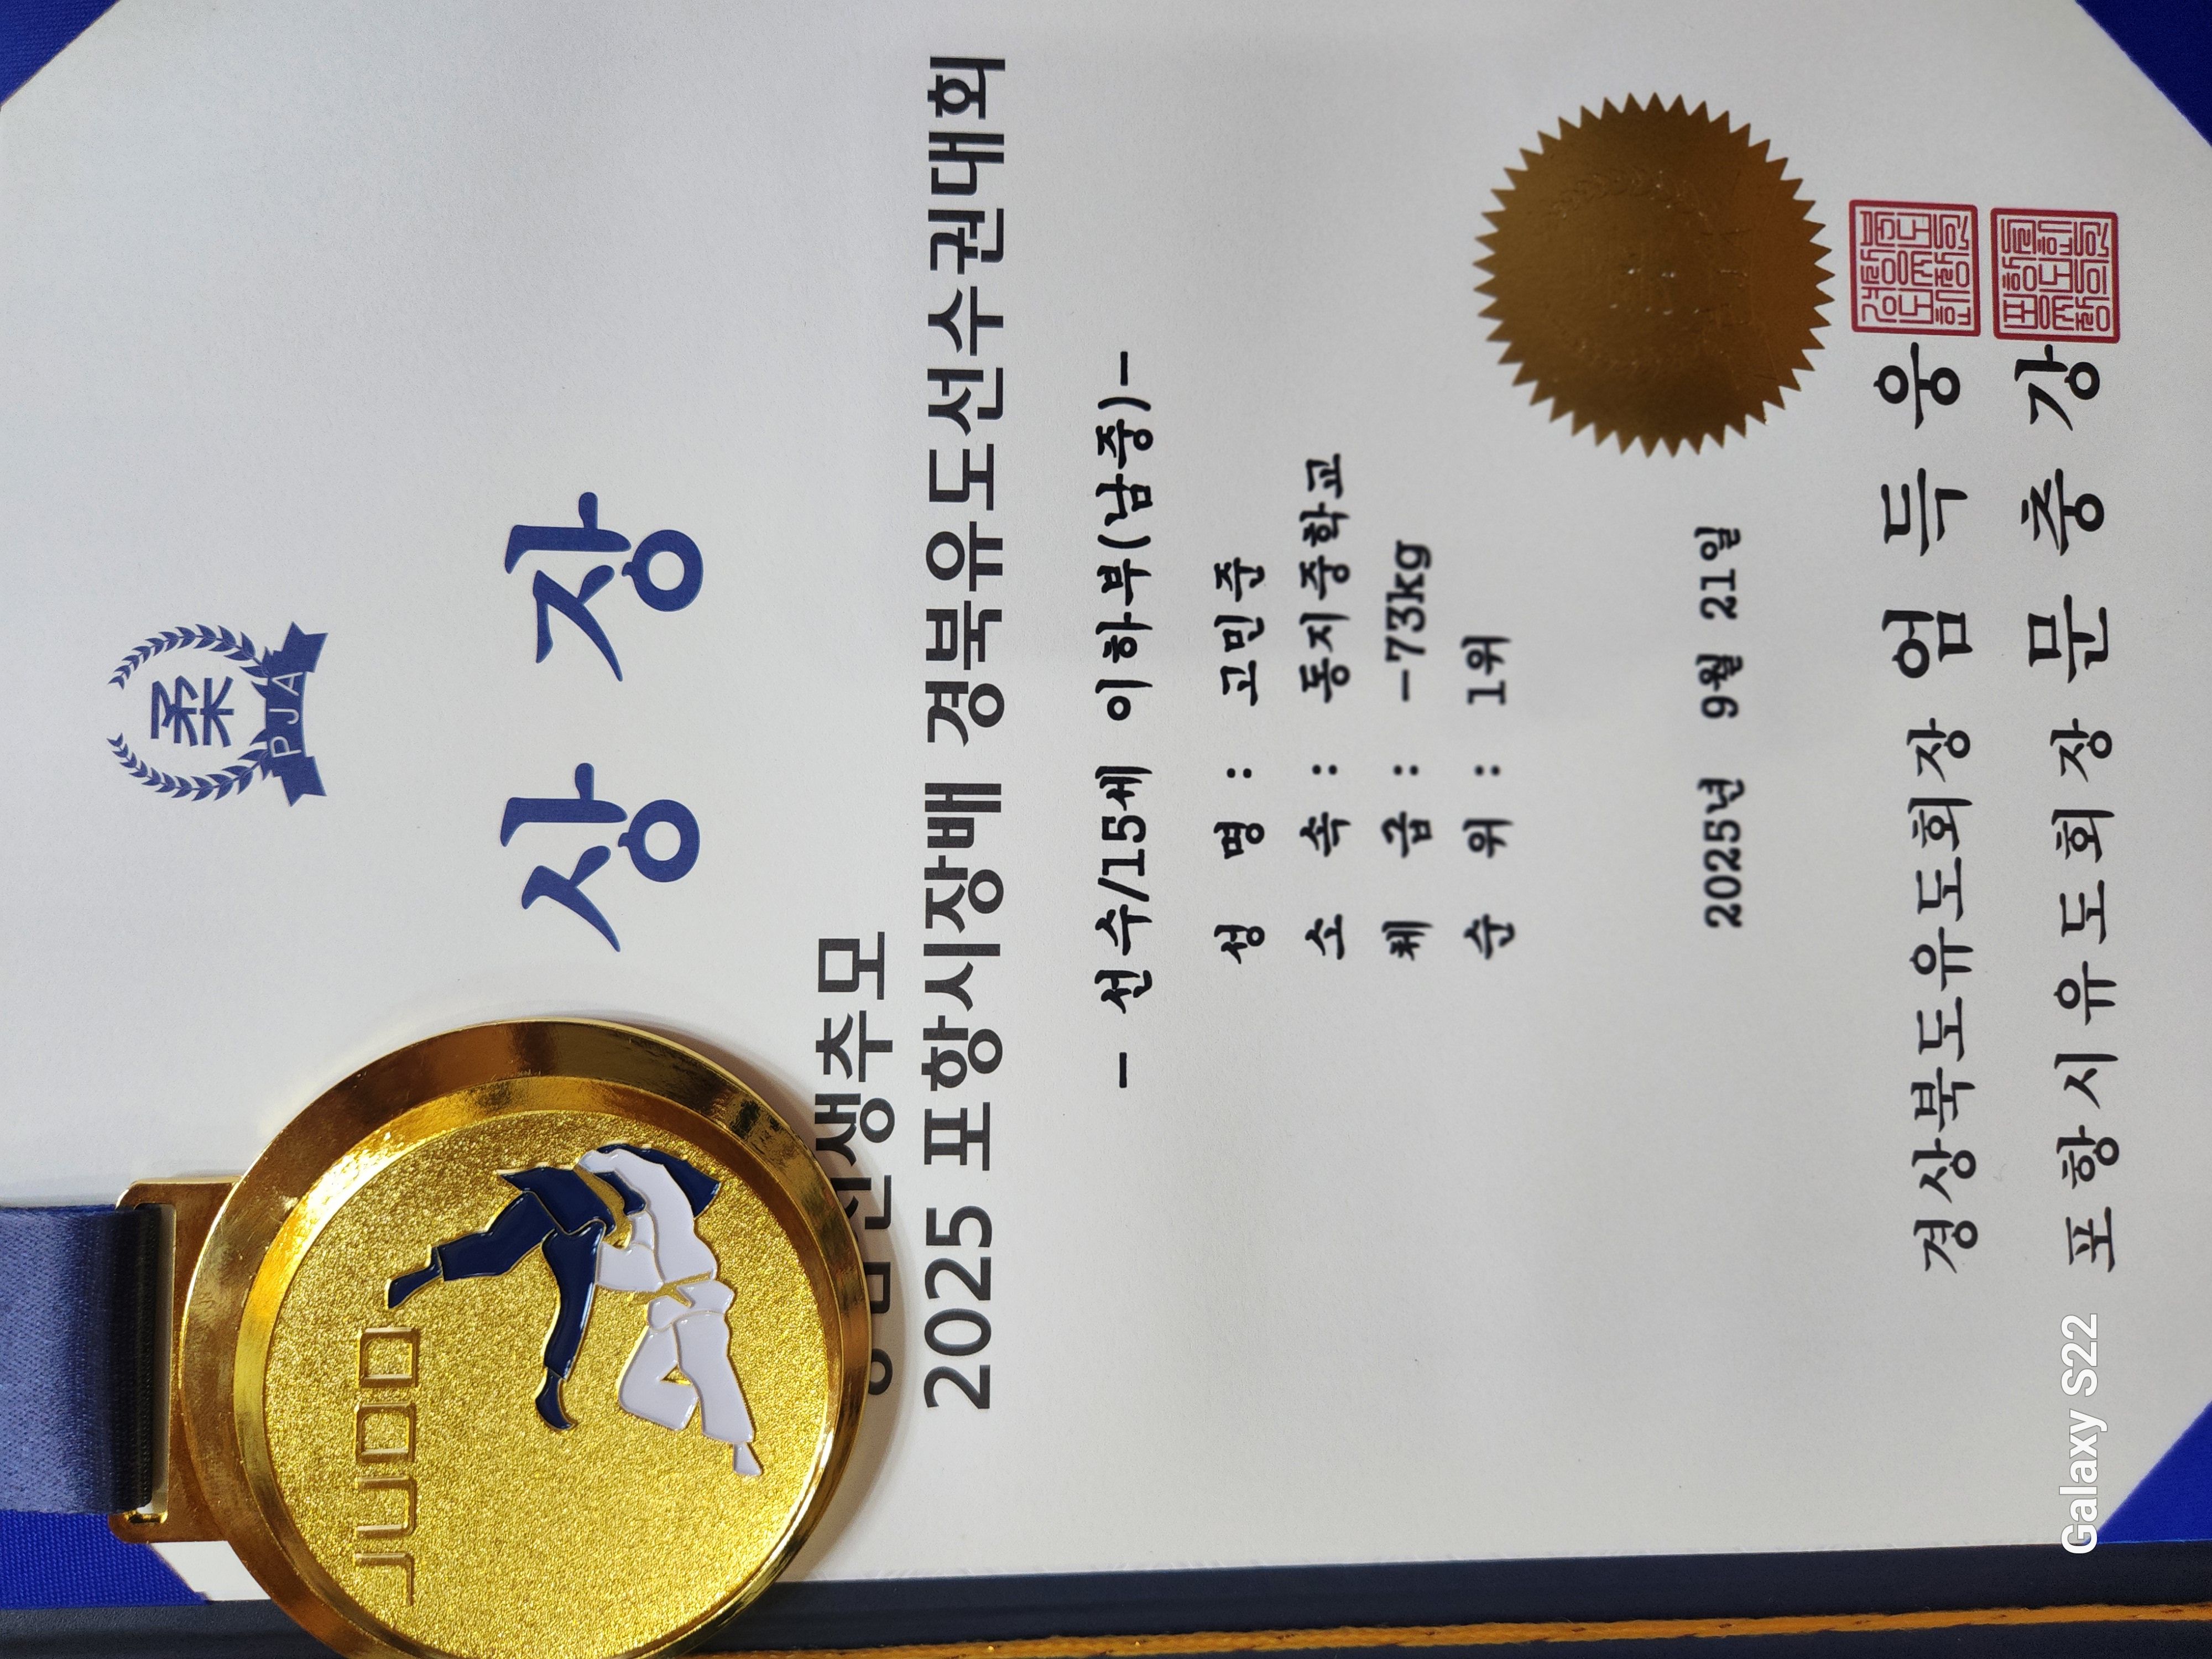 柔
PJA
상 장
생추모
2025 포항시장배 경북유도선수권대회
- 선수/15세 이하부(남중)-
성 명 : 고민준
소 속 : 동지중학교
체 급 : -73kg
순 위 : 1위
2025년 9월 21일
경상북도유도회장 엄 득 웅
포항시유도회장 문 충 강
JUDO
Galaxy S22